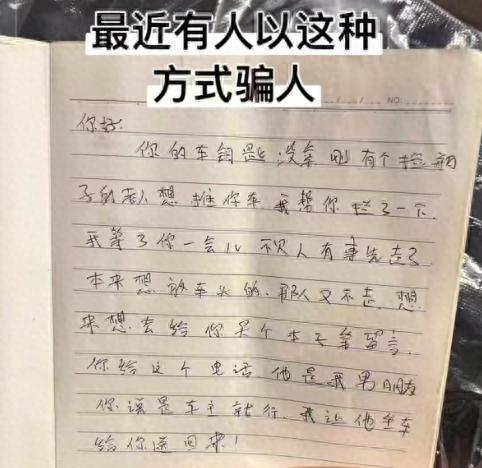 最近有人以这种
方式骗人
NO.
你好.
你的车钥匙没拿刚有个捡瓶
子的老人想推你车我帮你拦了一下.
我等了你一会儿本人有事先走了
本来想放车头的.那人又不走.想
来想去给你买个本子笔留言.
你给这个电话他是我男朋友
你说是车主就行.我让他坐车
给你送回来!